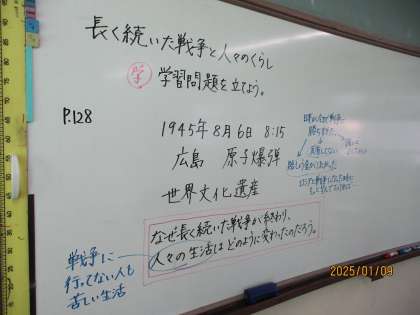 長く続いた戦争と人々のくらし
学 学習問題を立てよう。
P.128
1945年8月6日 8:15
広島 原子爆弾
世界文化遺産
なぜ長く続いた戦争が終わり、
人々の生活はどのように変わったのだろう。
戦争に
行ってない人も
苦しい生活
2025/01/09